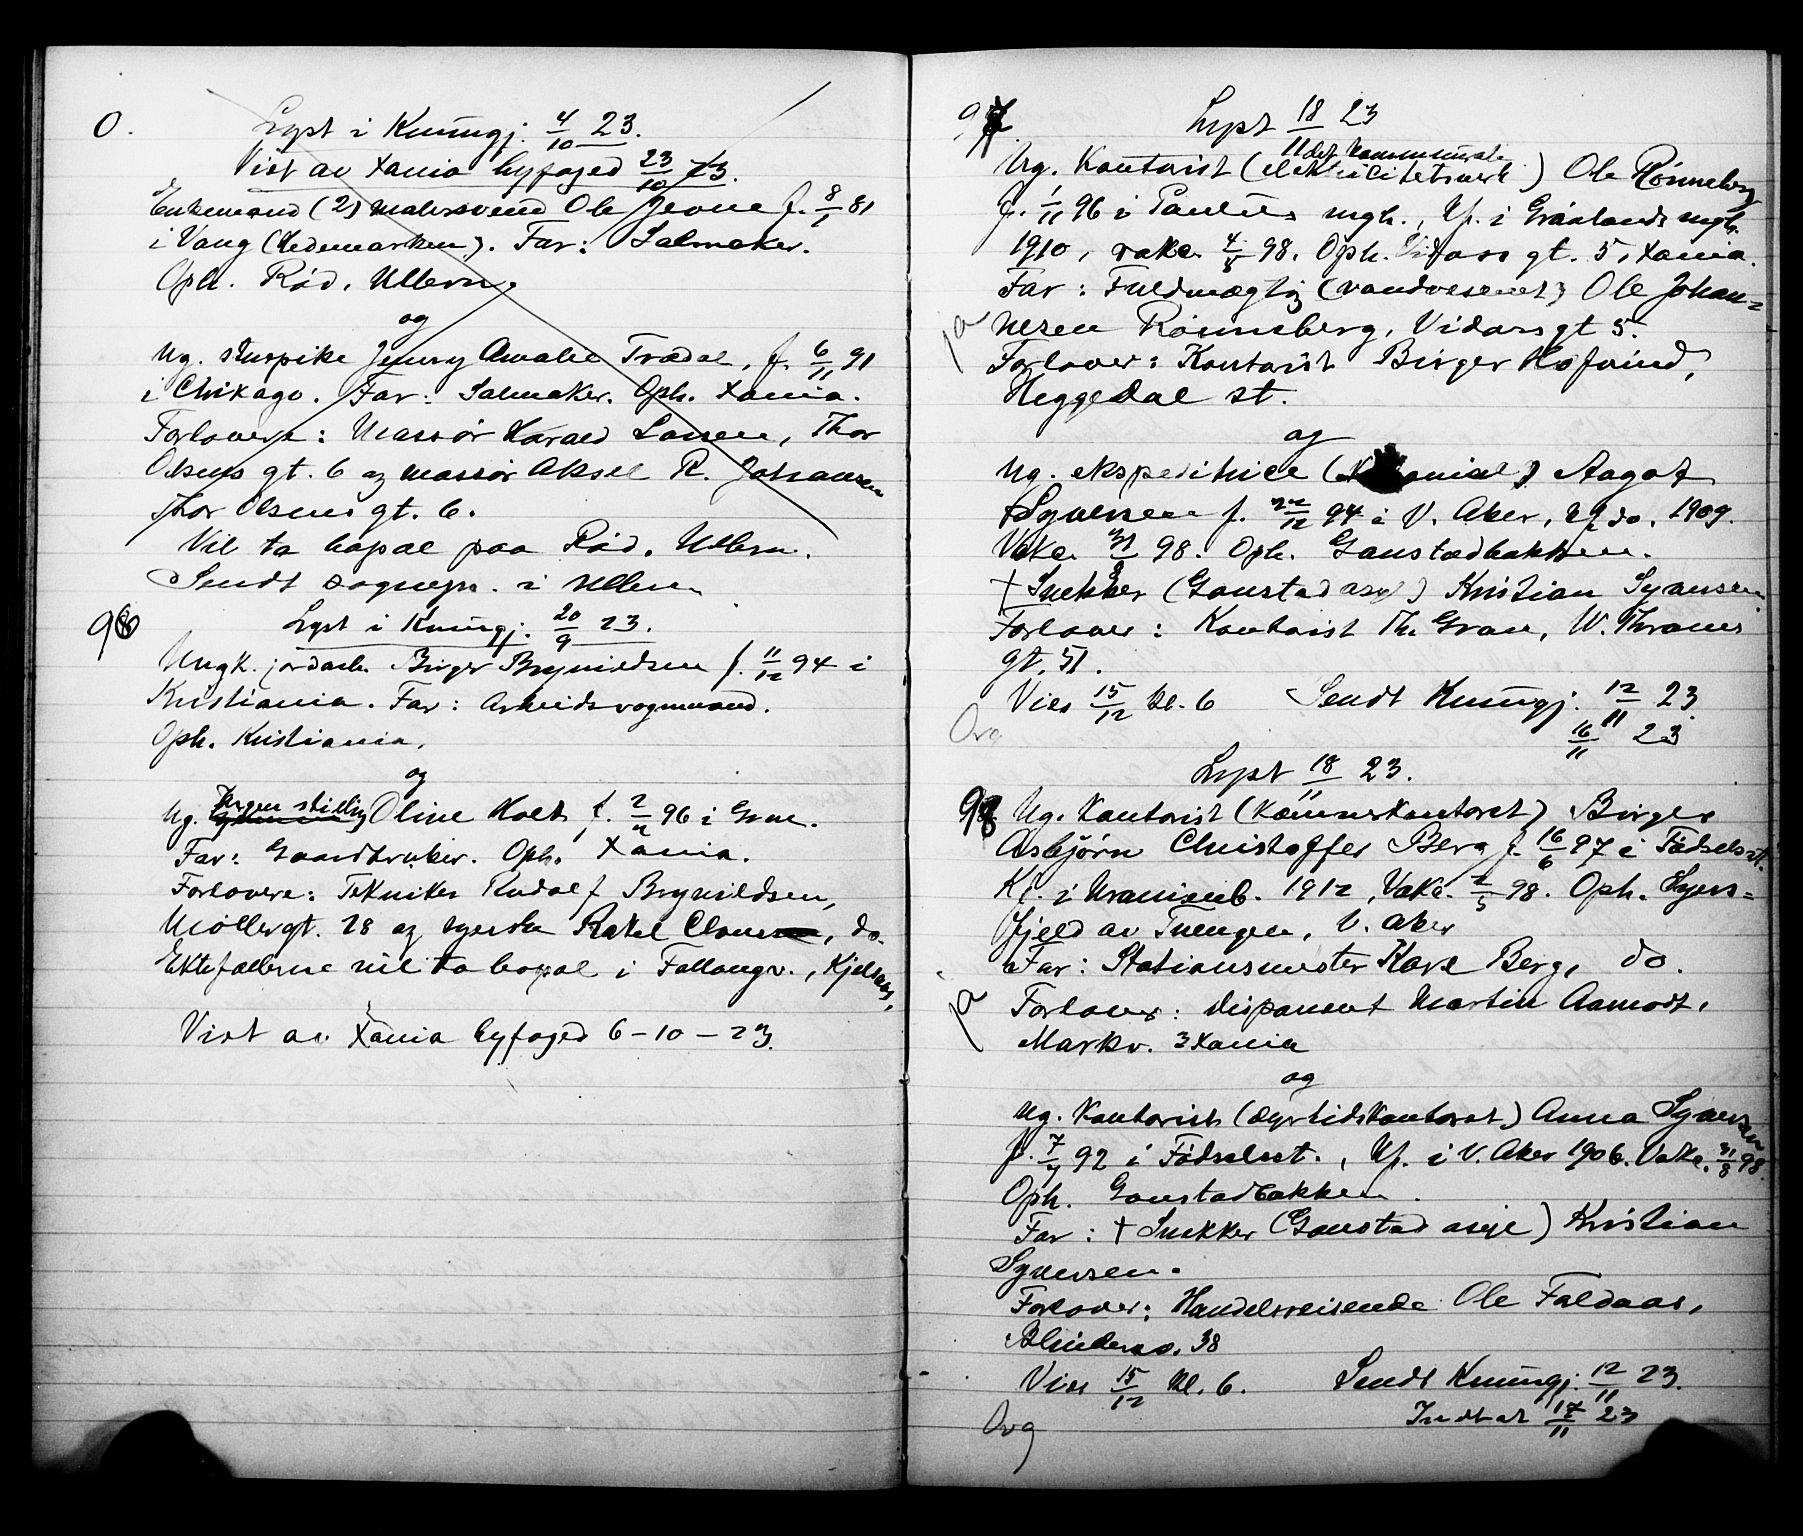 0. Lyst i Kunngj. 4/10 23.
Viet av Xania byfoged 23/10 23.
Enkemand (2) malersvend Ole Jevne f. 8/1 81
i Vang (Hedemarken). Far: Salmaker.
Oph. Rød, Ullern.
og
Ug. Huspike Jenny Amalie Trædal, f. 6/11 91
i Chikago. Far: Salmaker. Oph. Xania.
Forlovere: Massør Harald Larsen, Thor
Olsens gt. 6 og massør Aksel R. Johansen
Thor Olsens gt. 6.
Vil ta bopæl paa Rød, Ullern.
Sendt sognepr. i Ullern
96 Lyst i Kunngj. 20/9 23.
Ungk. jordarb. Birger Brynildsen f. 11/12 94 i
Kristiania. Far: Arbeids vognmand.
Oph. Kristiania.
og
Ug. Ingen stilling Oline Holt f. 2/11 96 i Grue.
Far: Gaardbruker. Oph. Xania.
Forlovere: Tekniker Rudolf Brynildsen,
Møllergt. 28 og syerske Rakel, do.
Ektefællerne vil ta bopæl i Fallangv., Kjelsaas,
Viet av Xania byfoged 6-10-23.
97. Lyst 18/11 23
det kommunale
Ug. Kontorist (elektricitetsverk) Ole Rønneberg
f. 1/11 96 i Paulus mgh., Kf. i Grønlands mgh.
1910, vakc. 4/8 98. Oph. Vidars gt. 5, Xania.
Far: Fuldmægtig (vandvesenet) Ole Johan=
ja nesen Rønneberg, Vidars gt 5.
Forlover: Kontorist Birger Hofvind,
Heggedal st.
og
Ug. ekspeditrice (Kolonial) Aagot
Syversen f. 22/12 94 i V. Aker, Kf. do. 1909.
Vakc. 31/8 98. Oph. Gaustadbakken.
† Snekker (Gaustad asyl) Kristian Syversen
Forlover: Kontorist Th. Gran, W. Thranes
gt. 51.
Vies 15/12 kl. 6 Sendt Kunngj. 12/11 23
Ovg 16/11 23
Lyst 18/11 23.
98 Ug. Kontorist (Kæmnerkontoret) Birger
Asbjørn Christoffer Berg f. 16/6 97 i Fødselsst.
Kf. i Uranienb. 1912, Vakc. 2/5 98. Oph. Lyns=
fjeld av Tuengen, V. Aker
Far: Stationsmester Karl Berg, do.
ja Forlover: Disponent Martin Aamodt,
Markv. 3 Xania
og
Ug. Kontorist (dyrtidskontoret) Anna Syversen
f. 7/4 92 i Fødselsst., Kf. i V. Aker 1906. Vakc. 31/8 98.
Oph. Gaustadbakken.
Far: † Snekker (Gaustad asyl) Kristian
Syversen.
Forlover: Handelsreisende Ole Faldaas,
Blindernv. 38
Vies 15/12 kl. 6. Sendt Kunngj. 12/11 23.
Ovg Indtat 17/11 23